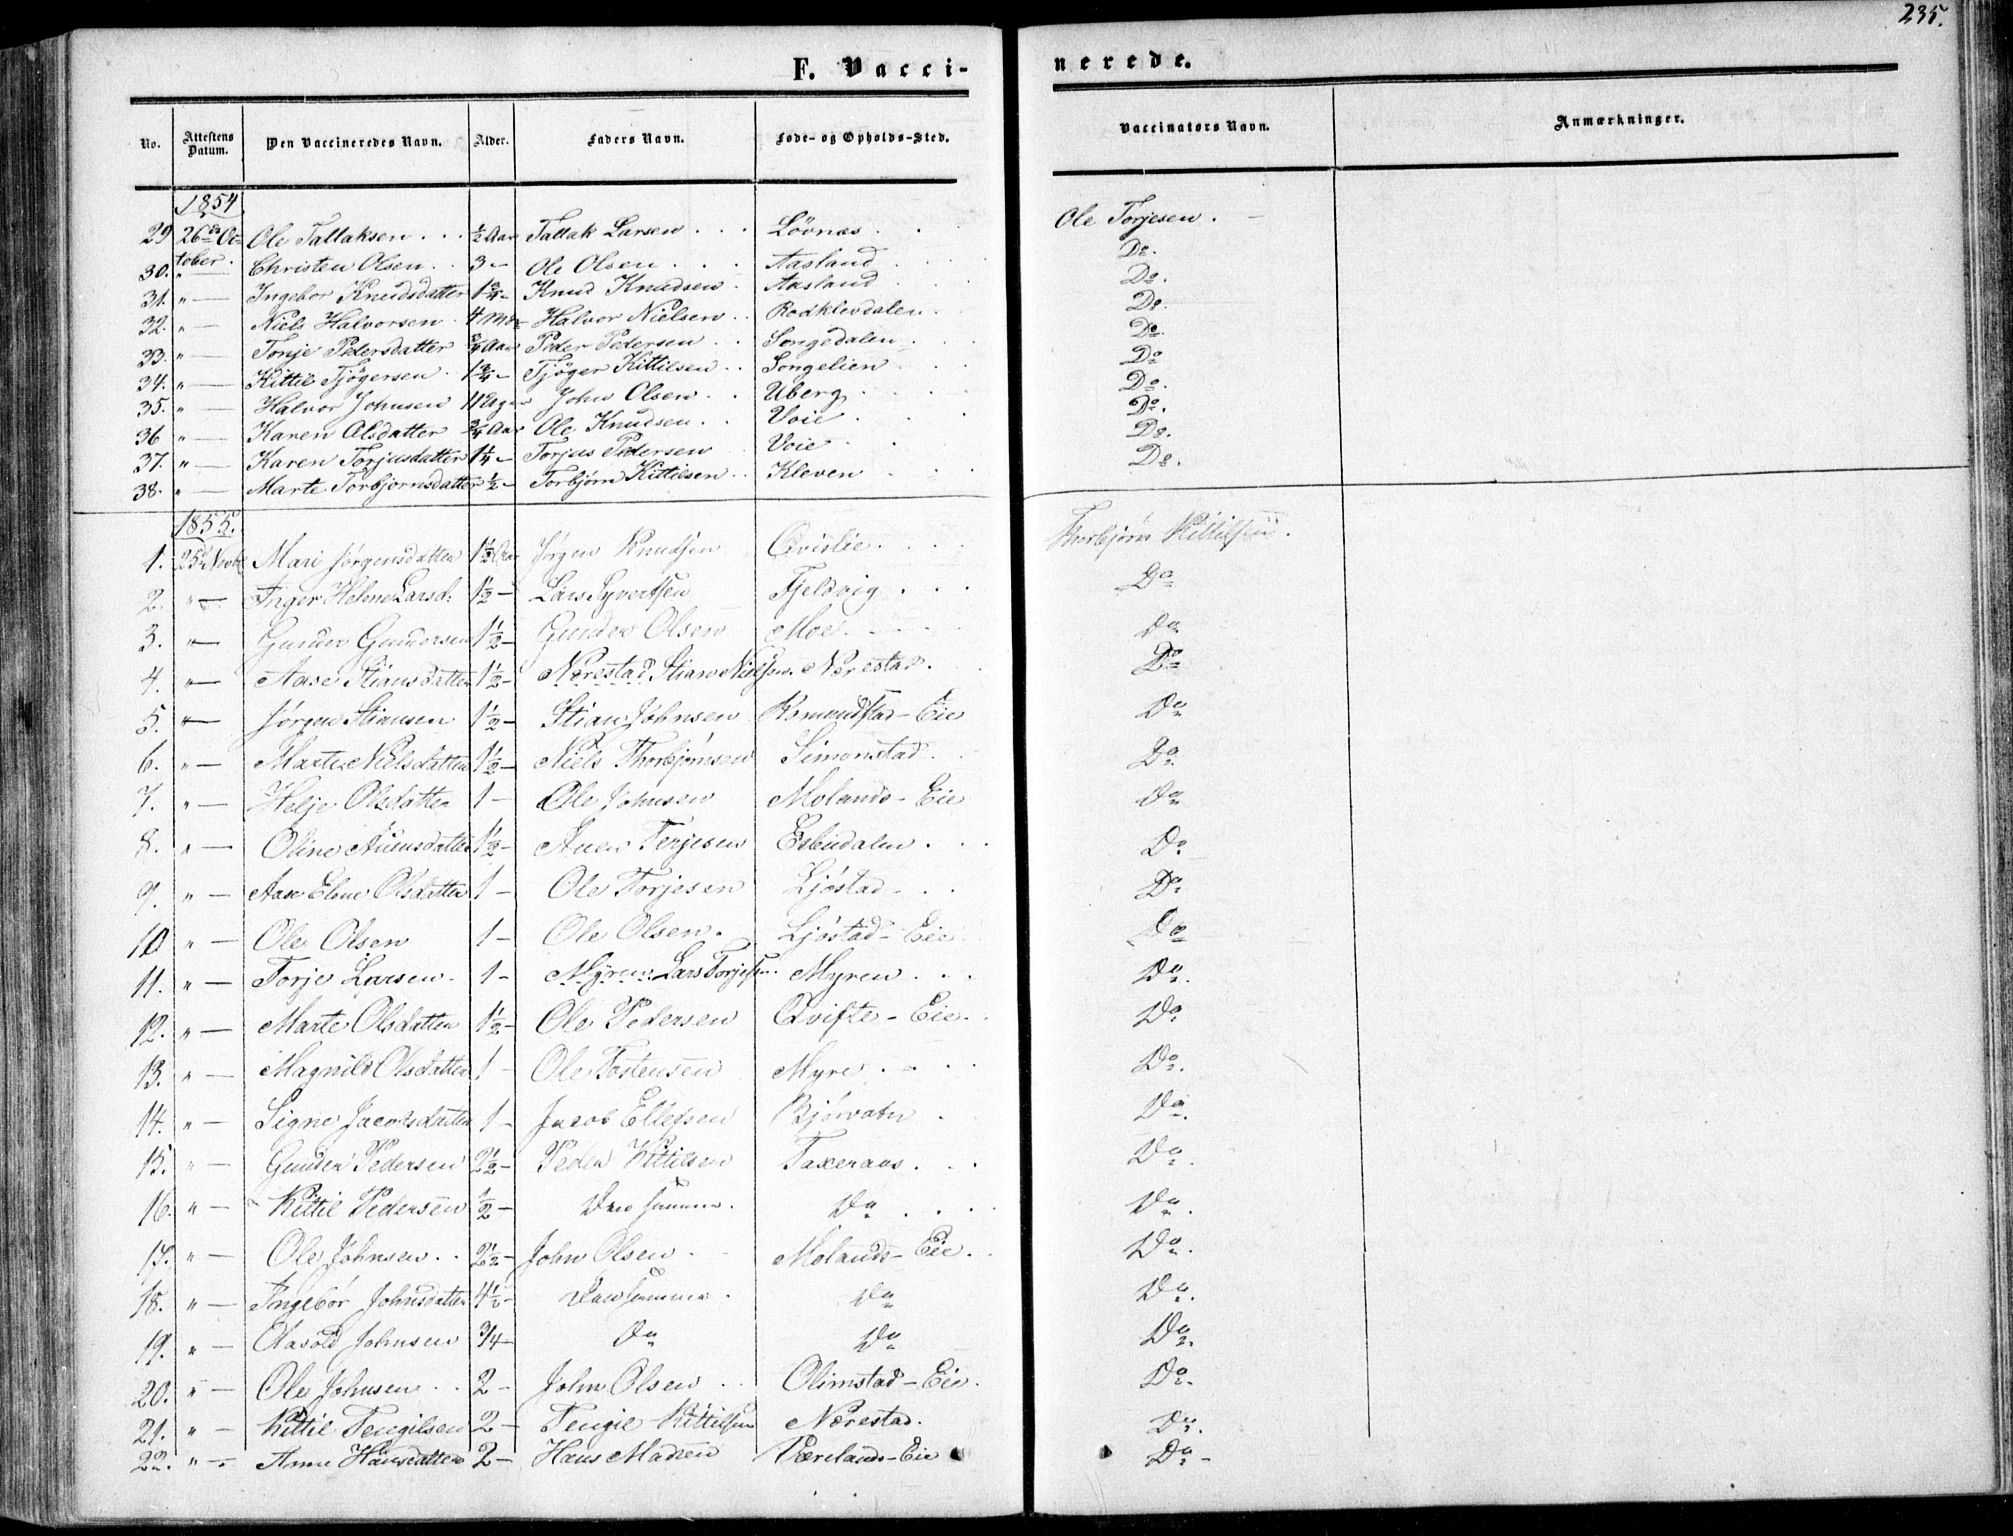 235.
F. Vacci- nerede.
No. Attestens Datum. Den Vaccineredes Navn. Alder. Faders Navn. Føde- og Opholds-Sted. Vaccinators Navn. Anmærkninger.
1854
29 26de Oc= Ole Tallaksen . . . ½ Aar Tallak Larsen . . . Løvnæs . . Ole Torjesen .
tober.
30. " — Christen Olsen . . 3 – Ole Olsen . . . Aasland Do.
31. " — Ingebor Knudsdatter 1¾ – Knud Knudsen . Aasland Do.
32. " — Niels Halvorsen . 4 Halvor Nielsen . . Rodklevdalen . Do.
33. " — Tonje Pedersdatter ¾ Aar Peder Pedersen . . Songedalen Do
34. " — Kittil Tjøgersen . 1¾ – Tjøger Kittilsen . . Songelien Do
35. " — Halvor Johnsen 11 John Olsen . . Uberg Do.
36 " — Karen Olsdatter ¾ Aar Ole Knudsen . . Voie Do.
37. " — Karen Torjusdatter 1¼ – Torjus Pedersen Voie Do.
38. " — Marte Torbjørnsdatter ½ – Torbjørn Kittilsen . . Kleven Do.
1855.
1. 25de Novbr Mari Jørgensdatter 1½ Aar Jørgen Knudsen Qvislie . Thorbjørn Kittilsen .
2. " — Inger Helene Larsd: 1½ – Lars Syvertsen Fjeldvig . . . Do
3. " — Gunder Gundersen 1½ – Gunder Olsen Moe . Do
4. " — Aase Stiansdatter 1½ – Nærestad Stian Nielsen. Nærestad . Do
5. " — Jørgen Stiansen 1½ – Stian Johnsen Rsmundstad – Eie Do
6. " — Marte Nielsdatter 1½ – Niels Thorbjørnsen Simonstad Do
7. " — Helje Olsdatter 1 – Ole Johnsen Molands – Eie Do
8. " — Oline Auensdatter 1½ – Auen Terjesen Esbudalen . . . Do
9. " — Aase Elene Olsdatter 1 – Ole Torjesen Ljøstad . . . Do
10 " — Ole Olsen 1 – Ole Olsen . Ljøstad – Eie Do
11. " — Torje Larsen . 1 – Myren Lars Torjesen. Myren . . . Do.
12. " — Marte Olsdatter 1½ – Ole Pedersen Qvifte – Eie . . Do
13. " — Magnild Olsdatter 1 – Ole Tostensen Myre . . . . Do.
14. " — Signe Jacobsdatter 1 – Jacob Ellefsen Bjørvatn . Do.
15. " — Gunder Pedersen 2½ – Peder Kittilsen Taxeraas . . . Do.
16. " — Kittil Pedersen ½ – Den samme . Do . . . . Do.
17. " — Ole Johnsen . . 2½ – John Olsen . Molands – Eie . . Do.
18. " — Ingebor Johnsdatter 4½ – Den samme . Do Do.
19. " — Olasold Johnsen ¾ – Do Do Do.
20. " — Ole Johnsen . . 2 – John Olsen . . Olimstad – Eie . Do.
21. " — Kittil Tengilsen 2 – Tengil Kittilsen Nærestad . Do.
22. " — Anne Hansdatter 2 – Hans Madsen Værelands – Eie Do –